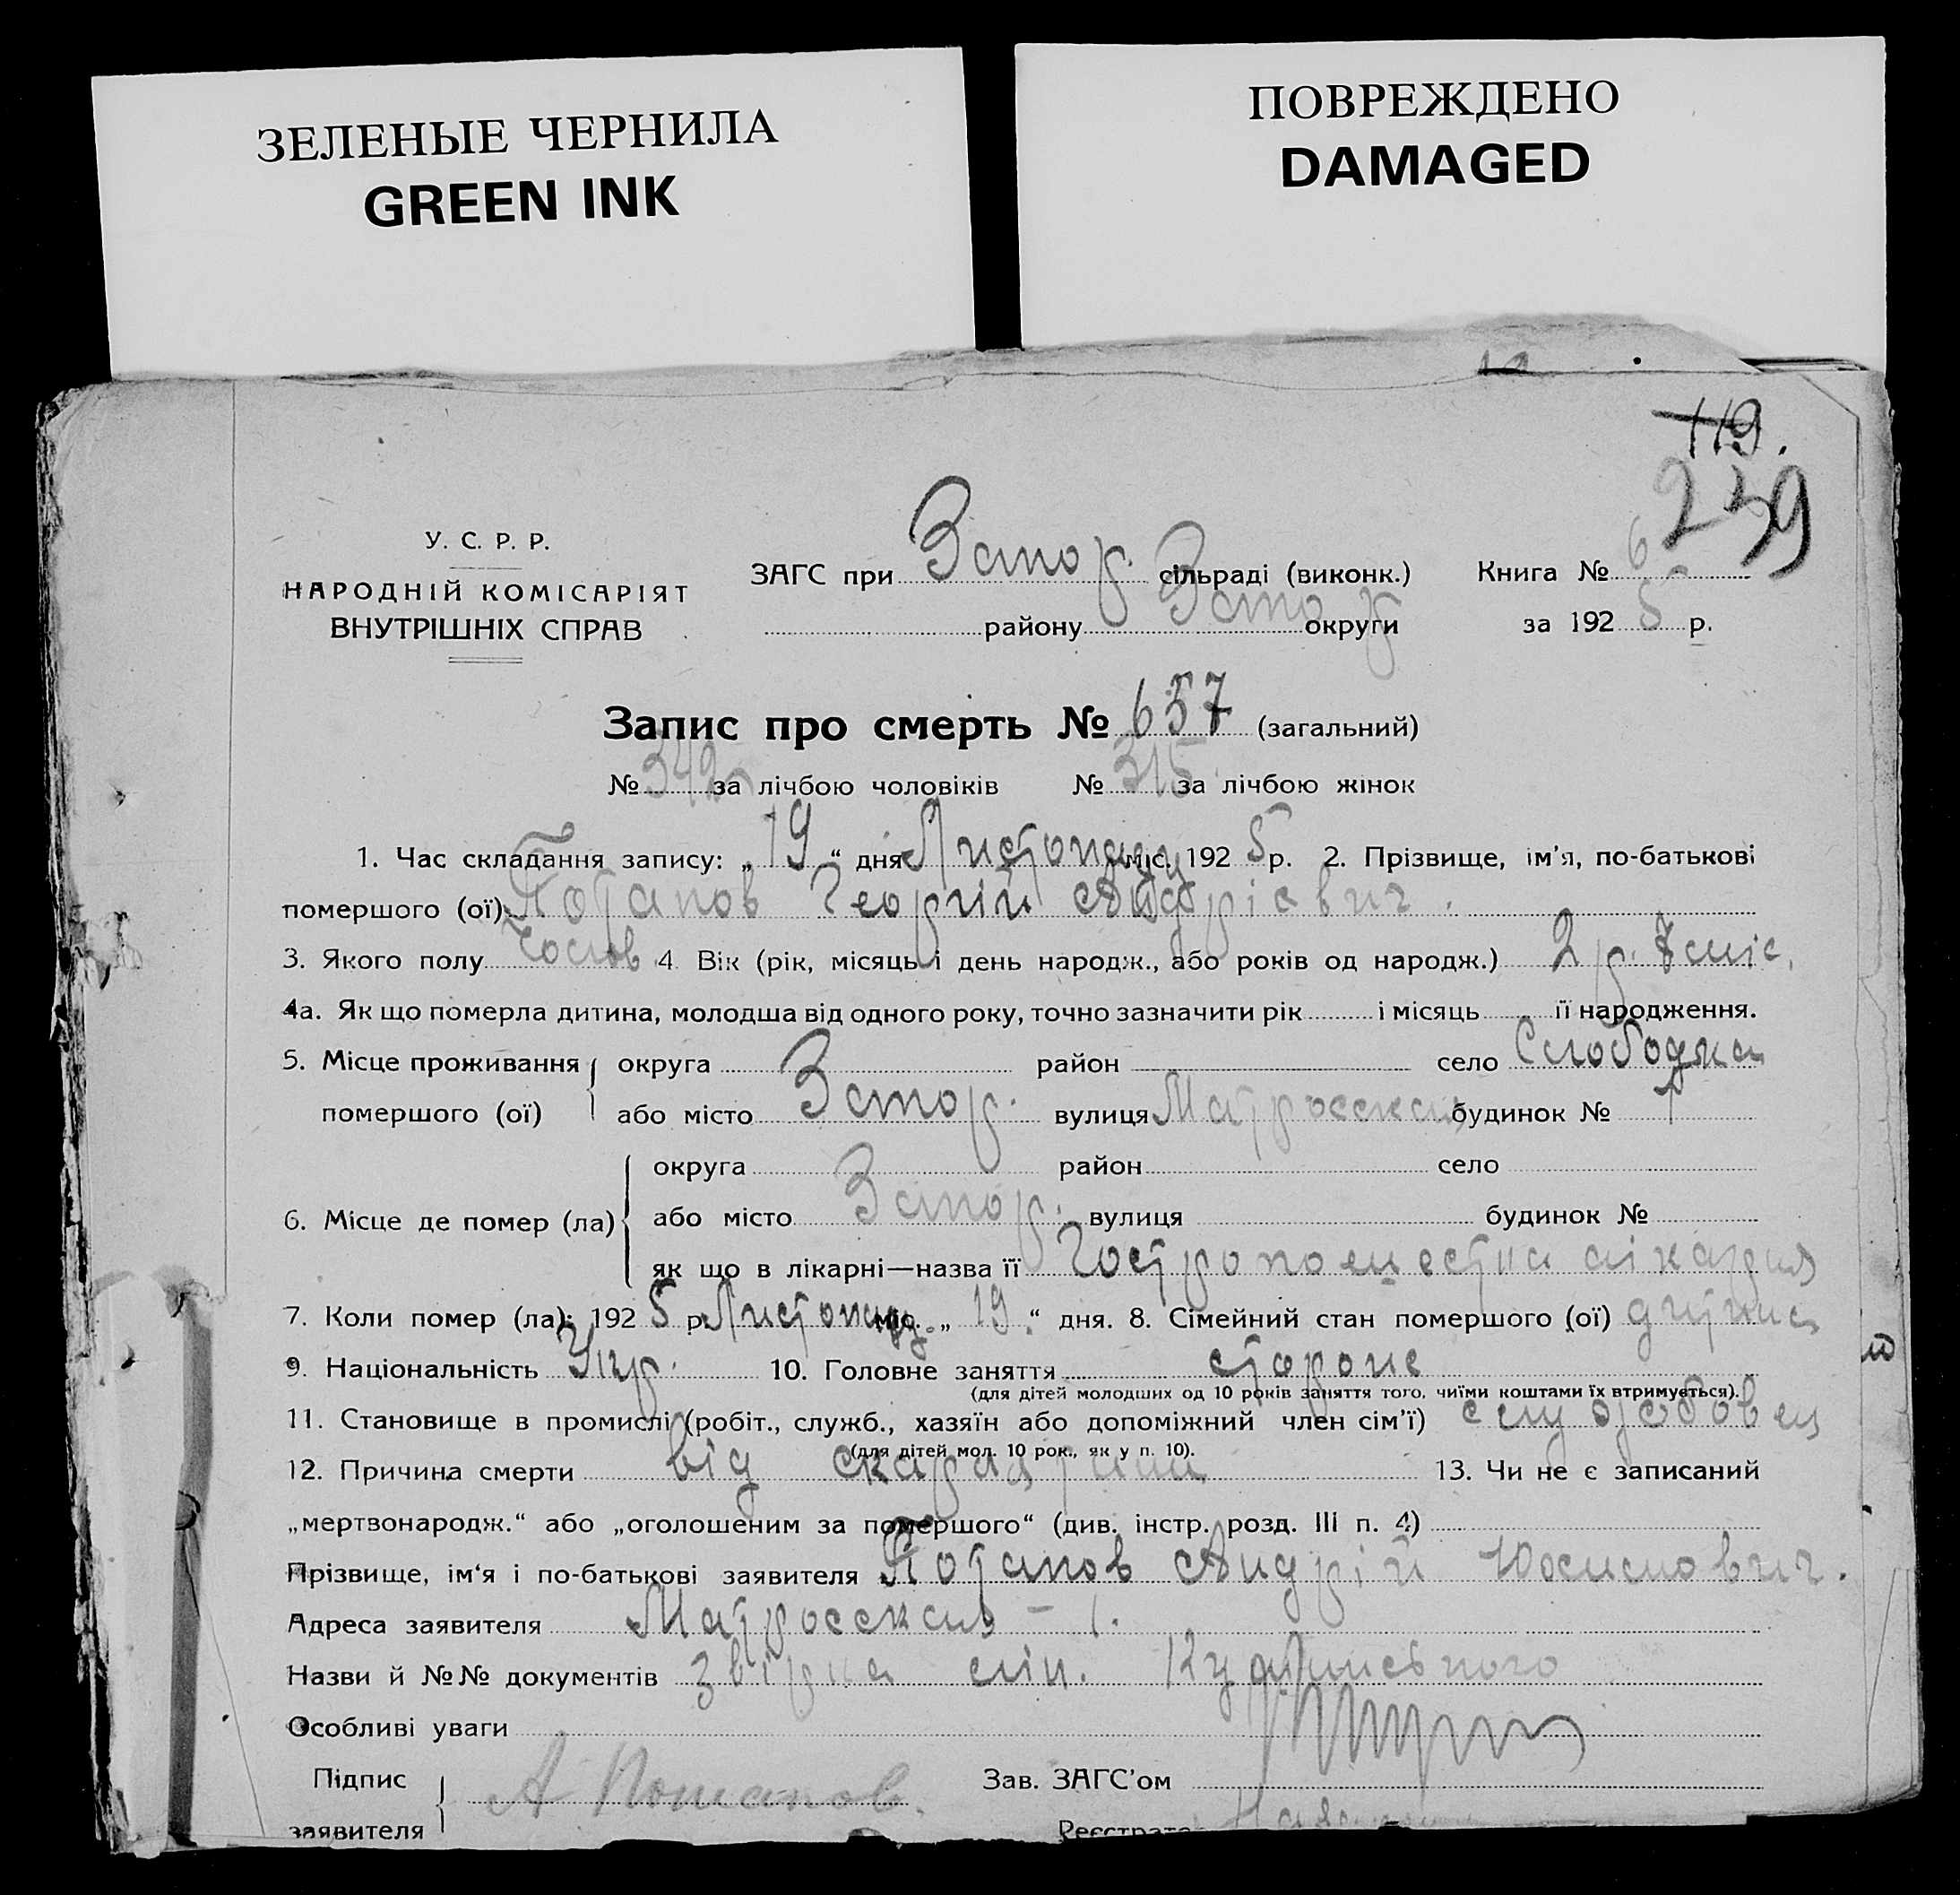 ЗЕЛЕНЫЕ ЧЕРНИЛА
GREEN INK
ПОВРЕЖДЕНО
DAMAGED
119.
239
У. С. Р. Р.
НАРОДНІЙ КОМІСАРІЯТ
ВНУТРІШНІХ СПРАВ
ЗАГС при Запор. сільраді (виконк.) Книга № 6
району Запор округи за 1925 р.
Запис про смерть № 657 (загальний)
№ 342 за лічбою чоловіків № 315 за лічбою жінок
1. Час складання запису: „19“ дня Листопаду міс. 1925 р. 2. Прізвище, ім'я, по-батькові
помершого (ої): Потапов Георгій Андрієвич.
3. Якого полу Чолов 4. Вік (рік, місяць і день народж., або років од народж.) 2 р. 7 міс.
4а. Як що померла дитина, молодша від одного року, точно зазначити рік і місяць її народження.
5. Місце проживання округа район село Слободка
помершого (ої) або місто Запор. вулиця Матросская будинок № 1
округа район село
6. Місце де помер (ла) або місто Запор. вулиця будинок №
як що в лікарні—назва її лікарня
7. Коли помер (ла): 1925 р. Листопад. міс. „19.“ дня. 8. Сімейний стан помершого (ої) дитина
9. Національність Укр. 10. Головне заняття стороже
(для дітей молодших од 10 років заняття того, чиїми коштами їх втримується).
11. Становище в промислі (робіт., служб., хазяїн або допоміжний член сім'ї) службовец
(для дітей мол. 10 рок., як у п. 10).
12. Причина смерти від скарлатини 13. Чи не є записаний
„мертвонародж.“ або „оголошеним за помершого“ (див. інстр. розд. III п. 4)
Прізвище, ім'я і по-батькові заявителя Потапов Андрій Юхимович.
Адреса заявителя Матросская – 1.
Назви й №№ документів
Особливі уваги
Підпис А Потапов. Зав. ЗАГС'ом
заявителя Реєстрато